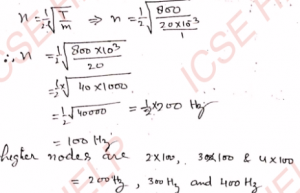 n = 1/2 √(T/m) ⇒ n = 1/2 √(800 / (20×10⁻³ / 1))
∴ n = 1/2 √(800 × 10³ / 20)
= 1/2 √(40 × 1000)
= 1/2 √40000 = 1/2 × 200 Hz
= 100 Hz
higher nodes are 2×100, 3×100 & 4×100
= 200 Hz, 300 Hz and 400 Hz
ICSE HELP
ICSE